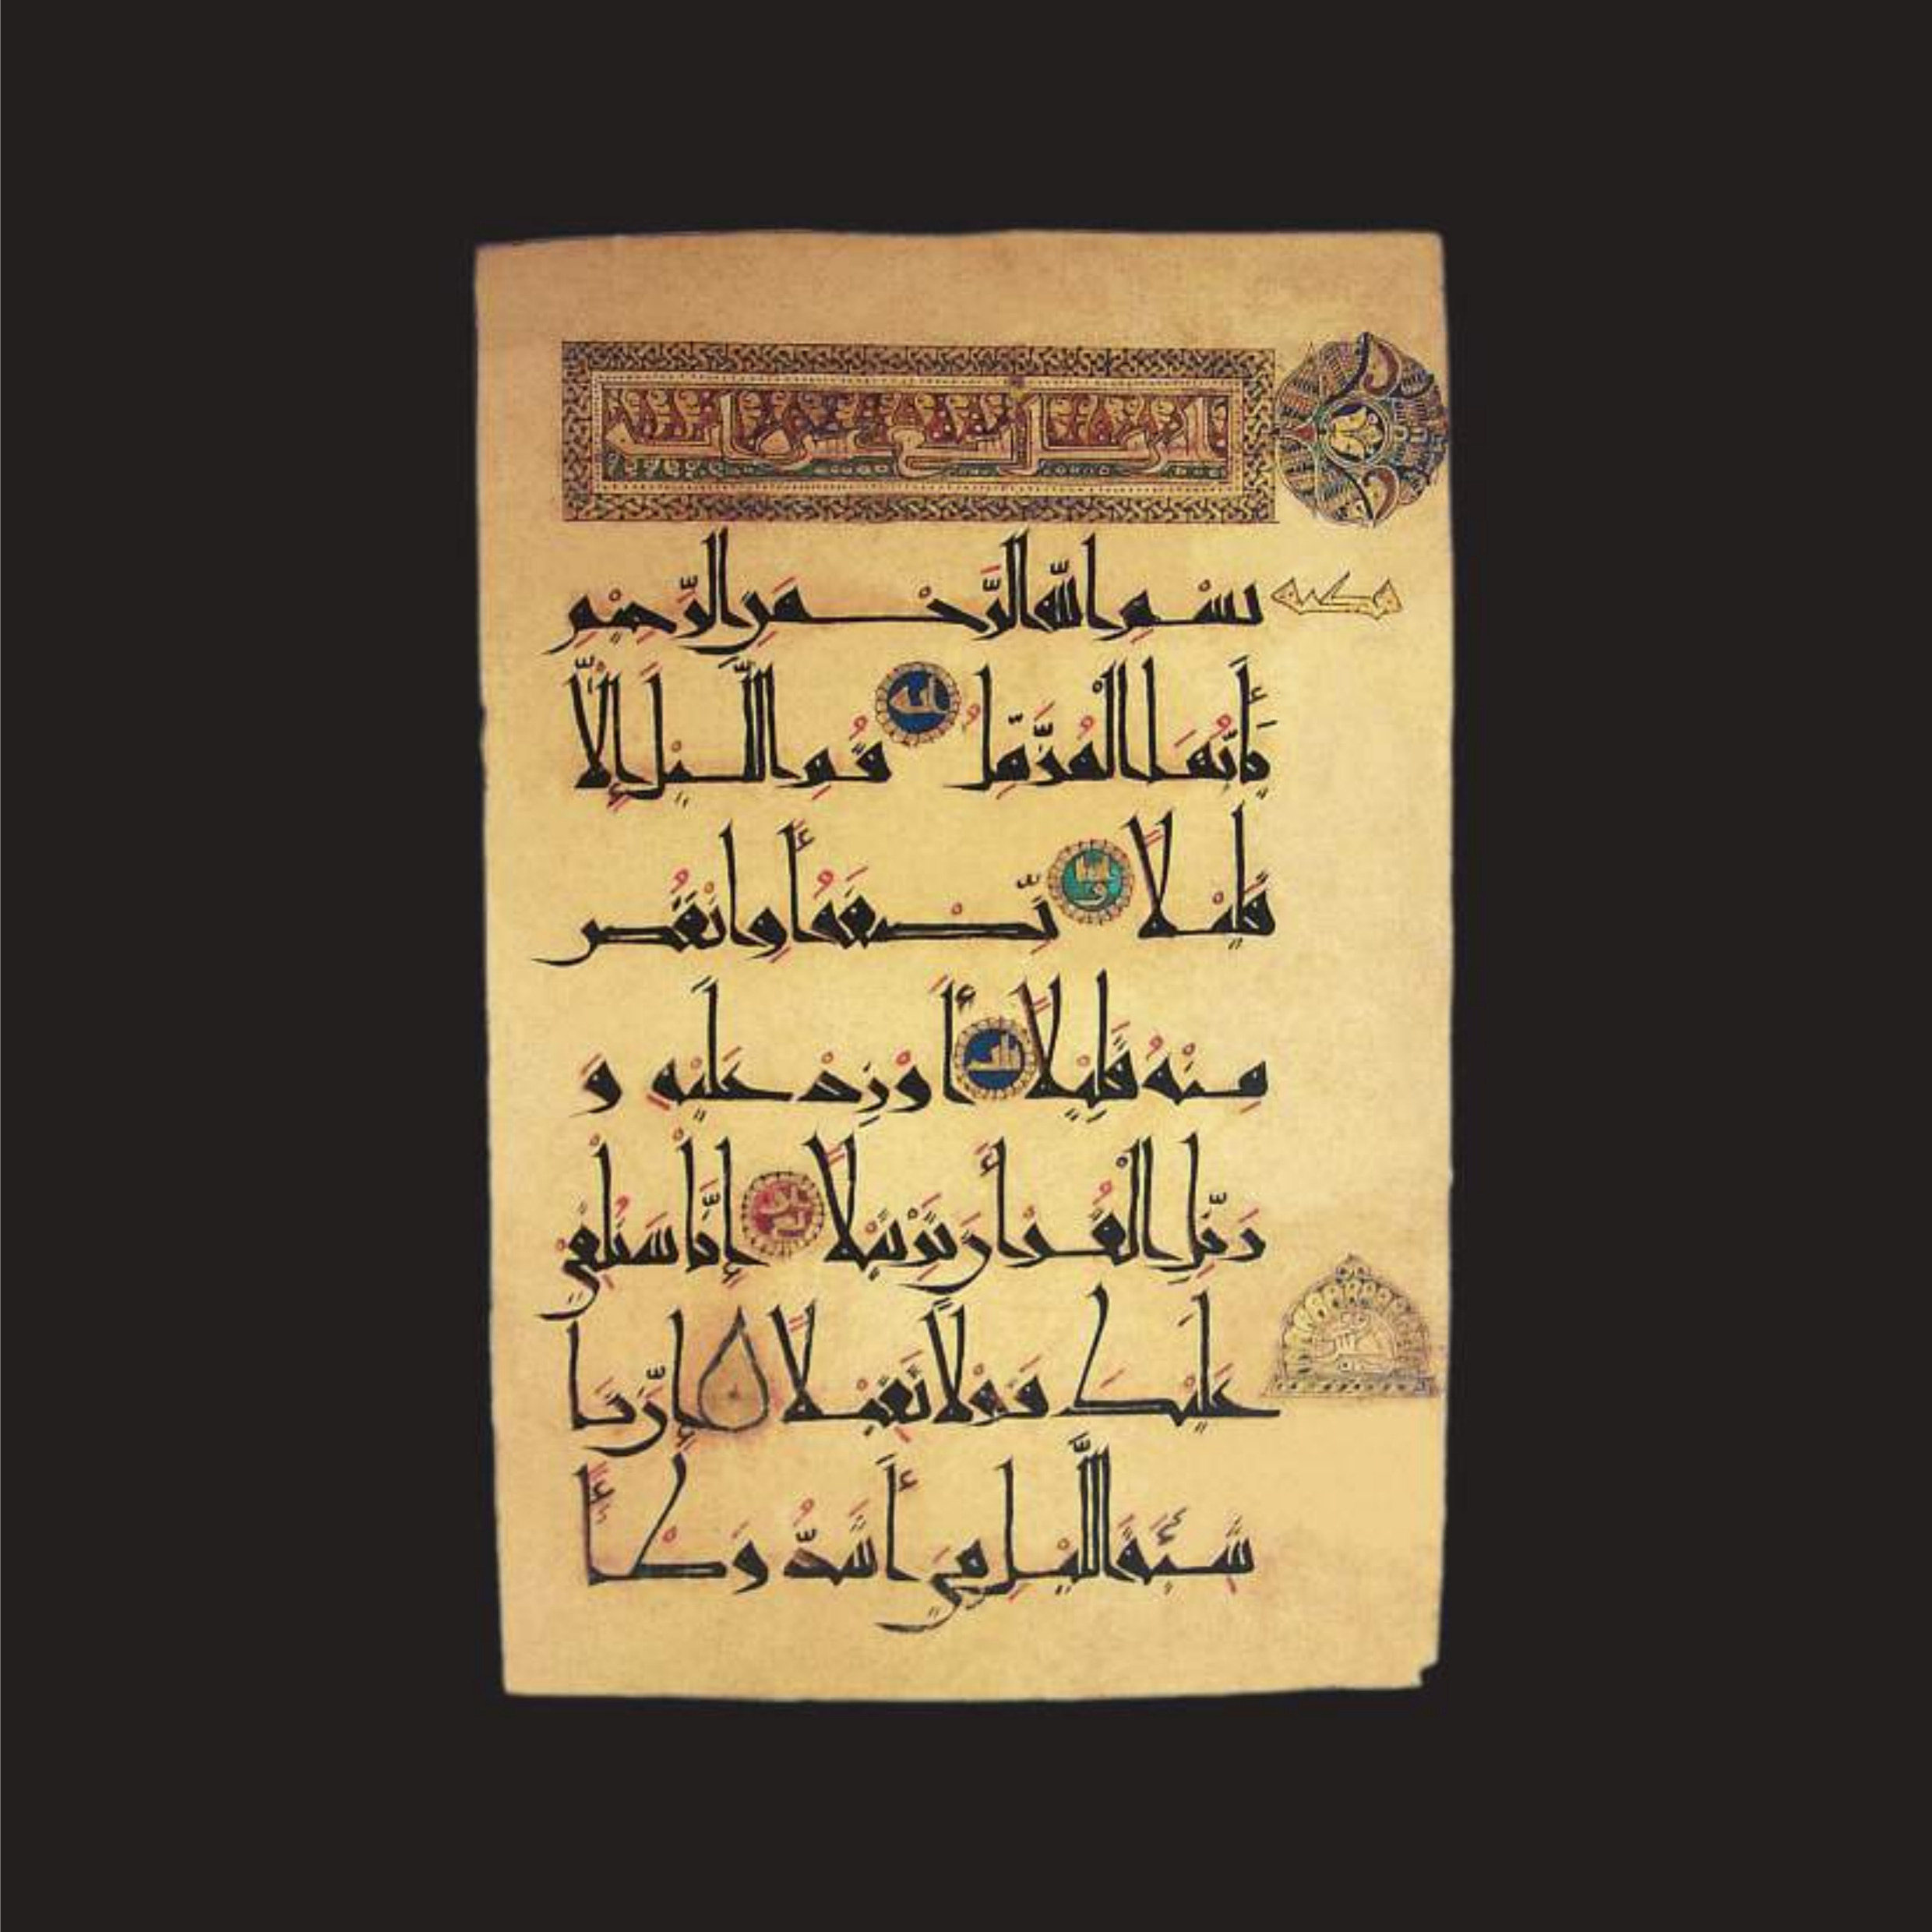 المزمل تسع عشر اية
مكية
بِسْمِ اللَّهِ الرَّحْمَنِ الرَّحِيمِ
يَأَيُّهَا الْمُزَّمِّلُ قُمِ اللَّيْلَ إِلَّا
قَلِيْلًا نِّصْفَهُ أَوِ انْقُصْ
مِنْهُ قَلِيْلًا أَوْ زِدْ عَلَيْهِ وَ
رَتِّلِ الْقُرْأَنَ تَرْتِيْلًا إِنَّا سَنُلْقِيْ
عَلَيْكَ قَوْلًا ثَقِيْلًا إِنَّ نَا
شِئَةَ اللَّيْلِ هِيَ أَشَدُّ وَطْأً